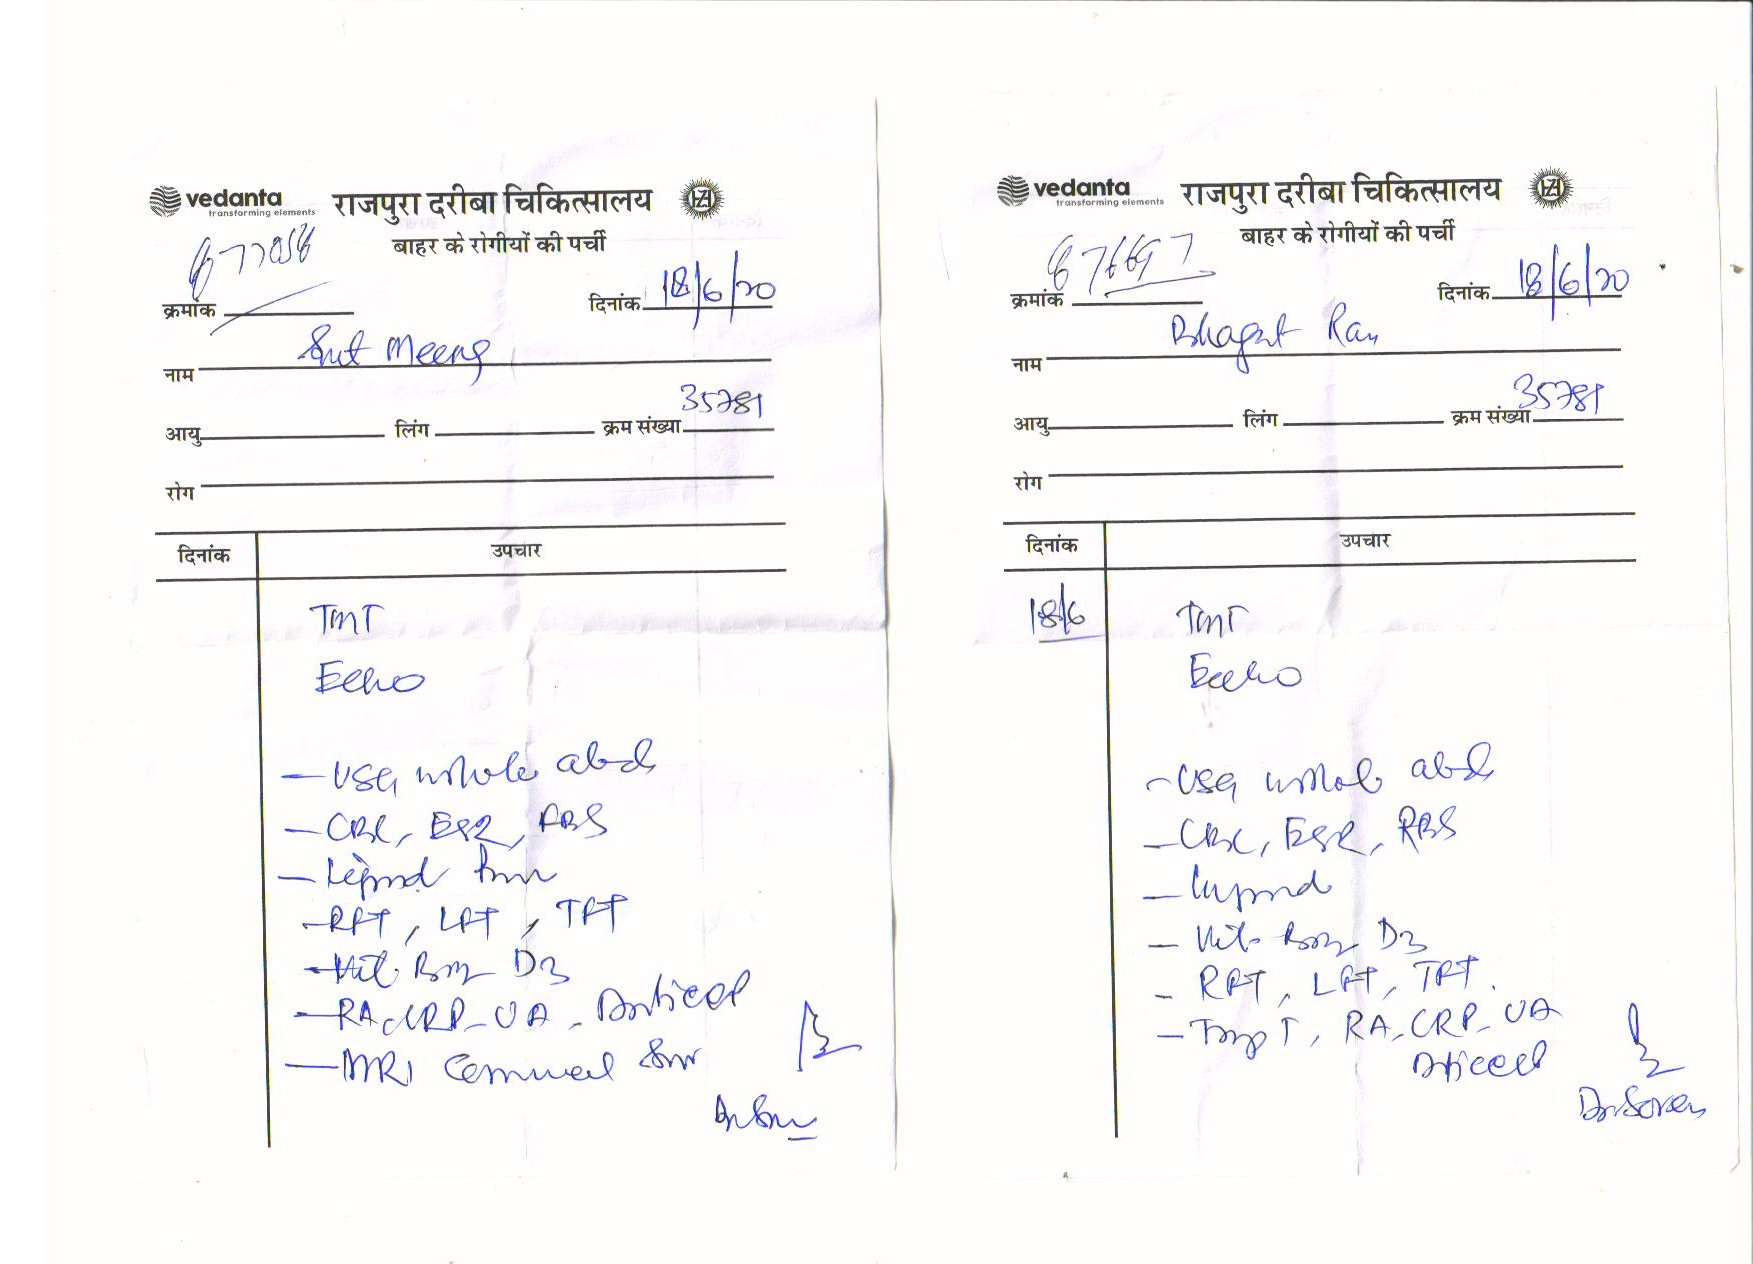 vedanta
transforming elements
राजपुरा दरीबा चिकित्सालय
बाहर के रोगीयों की पर्ची
क्रमांक
दिनांक 18/6/20
नाम Smt Meena
आयु लिंग क्रम संख्या 35781
रोग
दिनांक उपचार
TMT
Echo
- USG whole abd
- CBC, ESR, RBS
- Lipid
- RFT, LFT, TFT
- Vit. B12 D3
- RA, CRP, UA - Anticcp
- MRI
vedanta
transforming elements
राजपुरा दरीबा चिकित्सालय
बाहर के रोगीयों की पर्ची
क्रमांक 677697
दिनांक 18/6/20
नाम Bhagat Ram
आयु लिंग क्रम संख्या 35781
रोग
दिनांक उपचार
18/6 TMT
Echo
- USG whole abd
- CBC, ESR, RBS
- Lipid
- Vit. B12 D3
- RFT, LFT, TFT.
- Trop T, RA, CRP, UA
Anticcp